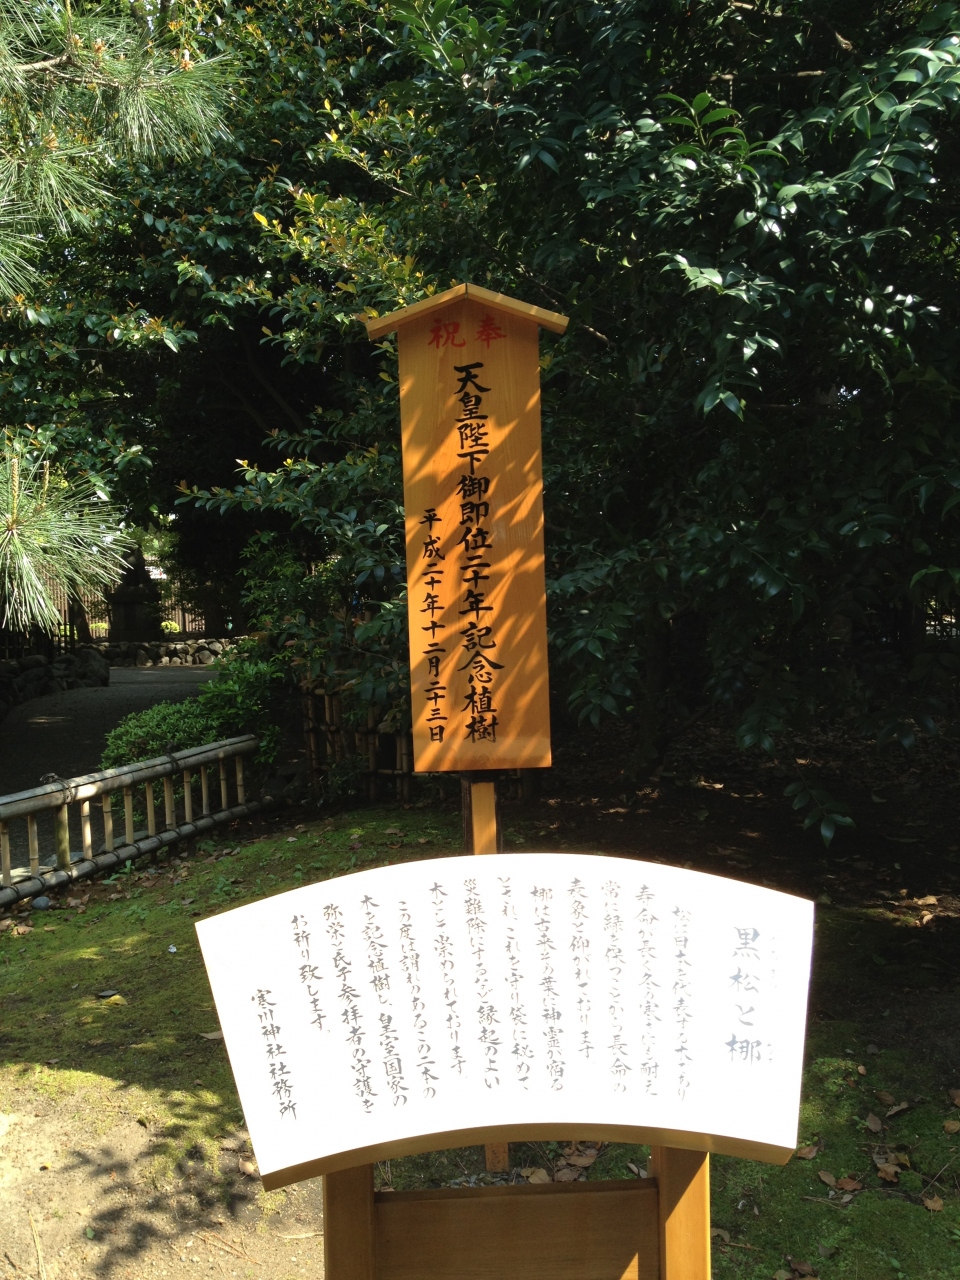 奉祝
天皇陛下御即位二十年記念植樹
平成二十年十二月二十三日
黒松と梛
松は日本を代表する木であり
寿命が長く冬の寒さにも耐え
常に緑を保つことから長命の
表象と仰がれております
梛は古来その葉に神霊が宿る
とされ、これを守り袋に秘めて、
災難除にするなど縁起のよい
木として崇められております。
この度は謂れのあるこの二本の
木を記念植樹し、皇室国家の
弥栄と氏子参拝者の守護を
お祈り致します。
寒川神社社務所